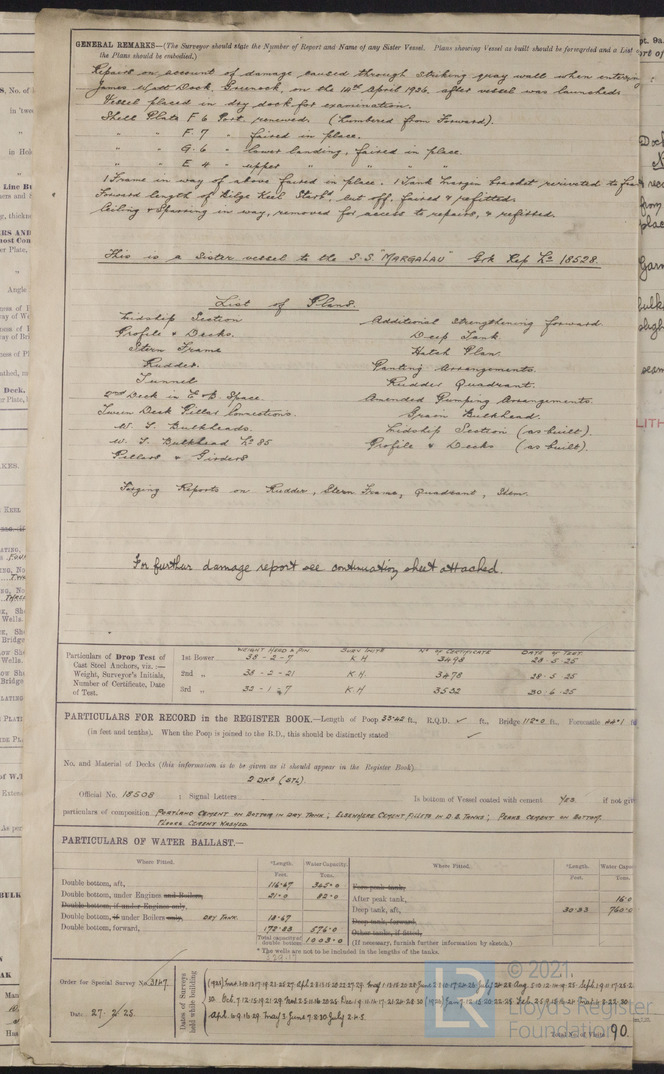 GENERAL REMARKS—(The Surveyor should state the Number of Report and Name of any Sister Vessel. Plans showing Vessel as built should be forwarded and a List
the Plans should be embodied.)
Repairs on account of damage caused through striking quay wall when entering
James Watt Dock, Greenock, on the 14th April 1926, after vessel was launched.
Vessel placed in dry dock for examination.
Shell Plate F 6 Port, renewed. (Numbered from Forward).
" " F. 7 " faired in place.
" " G. 6 " lower landing, faired in place.
" " E. 4 " upper " " " "
1 Frame in way of above faired in place. 1 Tank Margin bracket reriveted to
Forward length of Bilge Keel Starbd, cut off, faired & refitted.
Ceiling & Sparring in way, removed for access to repairs, & refitted.
This is a Sister vessel to the S.S. "MARGALAU" Grk Rep No 18528.
List of Plans.
Midship Section
Profile & Decks.
Stern Frame
Rudder.
Tunnel
2nd Deck in E & B. Space.
Tween Deck Pillar Connections.
W. T. Bulkheads.
W. T. Bulkhead No 85
Pillars & Girders
Additional Strengthening forward.
Deep Tank.
Hatch Plan.
Panting Arrangements.
Rudder Quadrant.
Amended Pumping Arrangements.
Grain Bulkhead.
Midship Section (as built).
Profile & Decks (as built).
Forging Reports on Rudder, Stern Frame, Quadrant, Stem.
For further damage report see continuation sheet attached.
Particulars of Drop Test of
Cast Steel Anchors, viz.:—
Weight, Surveyor's Initials,
Number of Certificate, Date
of Test.
WEIGHT HEAD & PIN. SURV INITS No OF CERTIFICATE DATE OF TEST.
1st Bower 38 - 2 - 7 K.H 3498 28-5-25
2nd " 38 - 2 - 21 K.H. 3478 28-5-25
3rd " 32 - 1 - 7 K.H 3532 30-6-25
PARTICULARS FOR RECORD in the REGISTER BOOK.—Length of Poop 33.42 ft., R.Q.D. ✓ ft., Bridge 112.0 ft., Forecastle 44.1
(in feet and tenths). When the Poop is joined to the B.D., this should be distinctly stated ✓
No. and Material of Decks (this information is to be given as it should appear in the Register Book)
2 DKs (STL).
Official No. 18508 ; Signal Letters Is bottom of Vessel coated with cement YES if not
particulars of composition PORTLAND CEMENT ON BOTTOM IN DRY TANK; ELSEWHERE CEMENT FILLETS IN D.B. TANKS; PEAKS CEMENT ON BOTTOM,
FLOORS CEMENT WASHED.
PARTICULARS OF WATER BALLAST.—
Where Fitted. *Length. Water Capacity.
Feet. Tons.
Double bottom, aft, 116.67 345.0
Double bottom, under Engines and Boilers, 21.0 82.0
Double bottom, if under Engines only,
Double bottom, if under Boilers only, DRY TANK 18.67
Double bottom, forward, 172.83 576.0
Total capacity of double bottom 1003.0
Where Fitted. *Length. Water
Feet. Tons.
Fore peak tank,
After peak tank, 16.0
Deep tank, aft, 30.33 760.0
Deep tank, forward,
Other tanks, if fitted,
(If necessary, furnish further information by sketch.)
* The wells are not to be included in the lengths of the tanks.
Order for Special Survey No. 3147
Date 27/2/25.
Dates of Surveys
held while building
Total No. of Visits 90.
© 2021.
LR
Lloyd's Register
Foundation